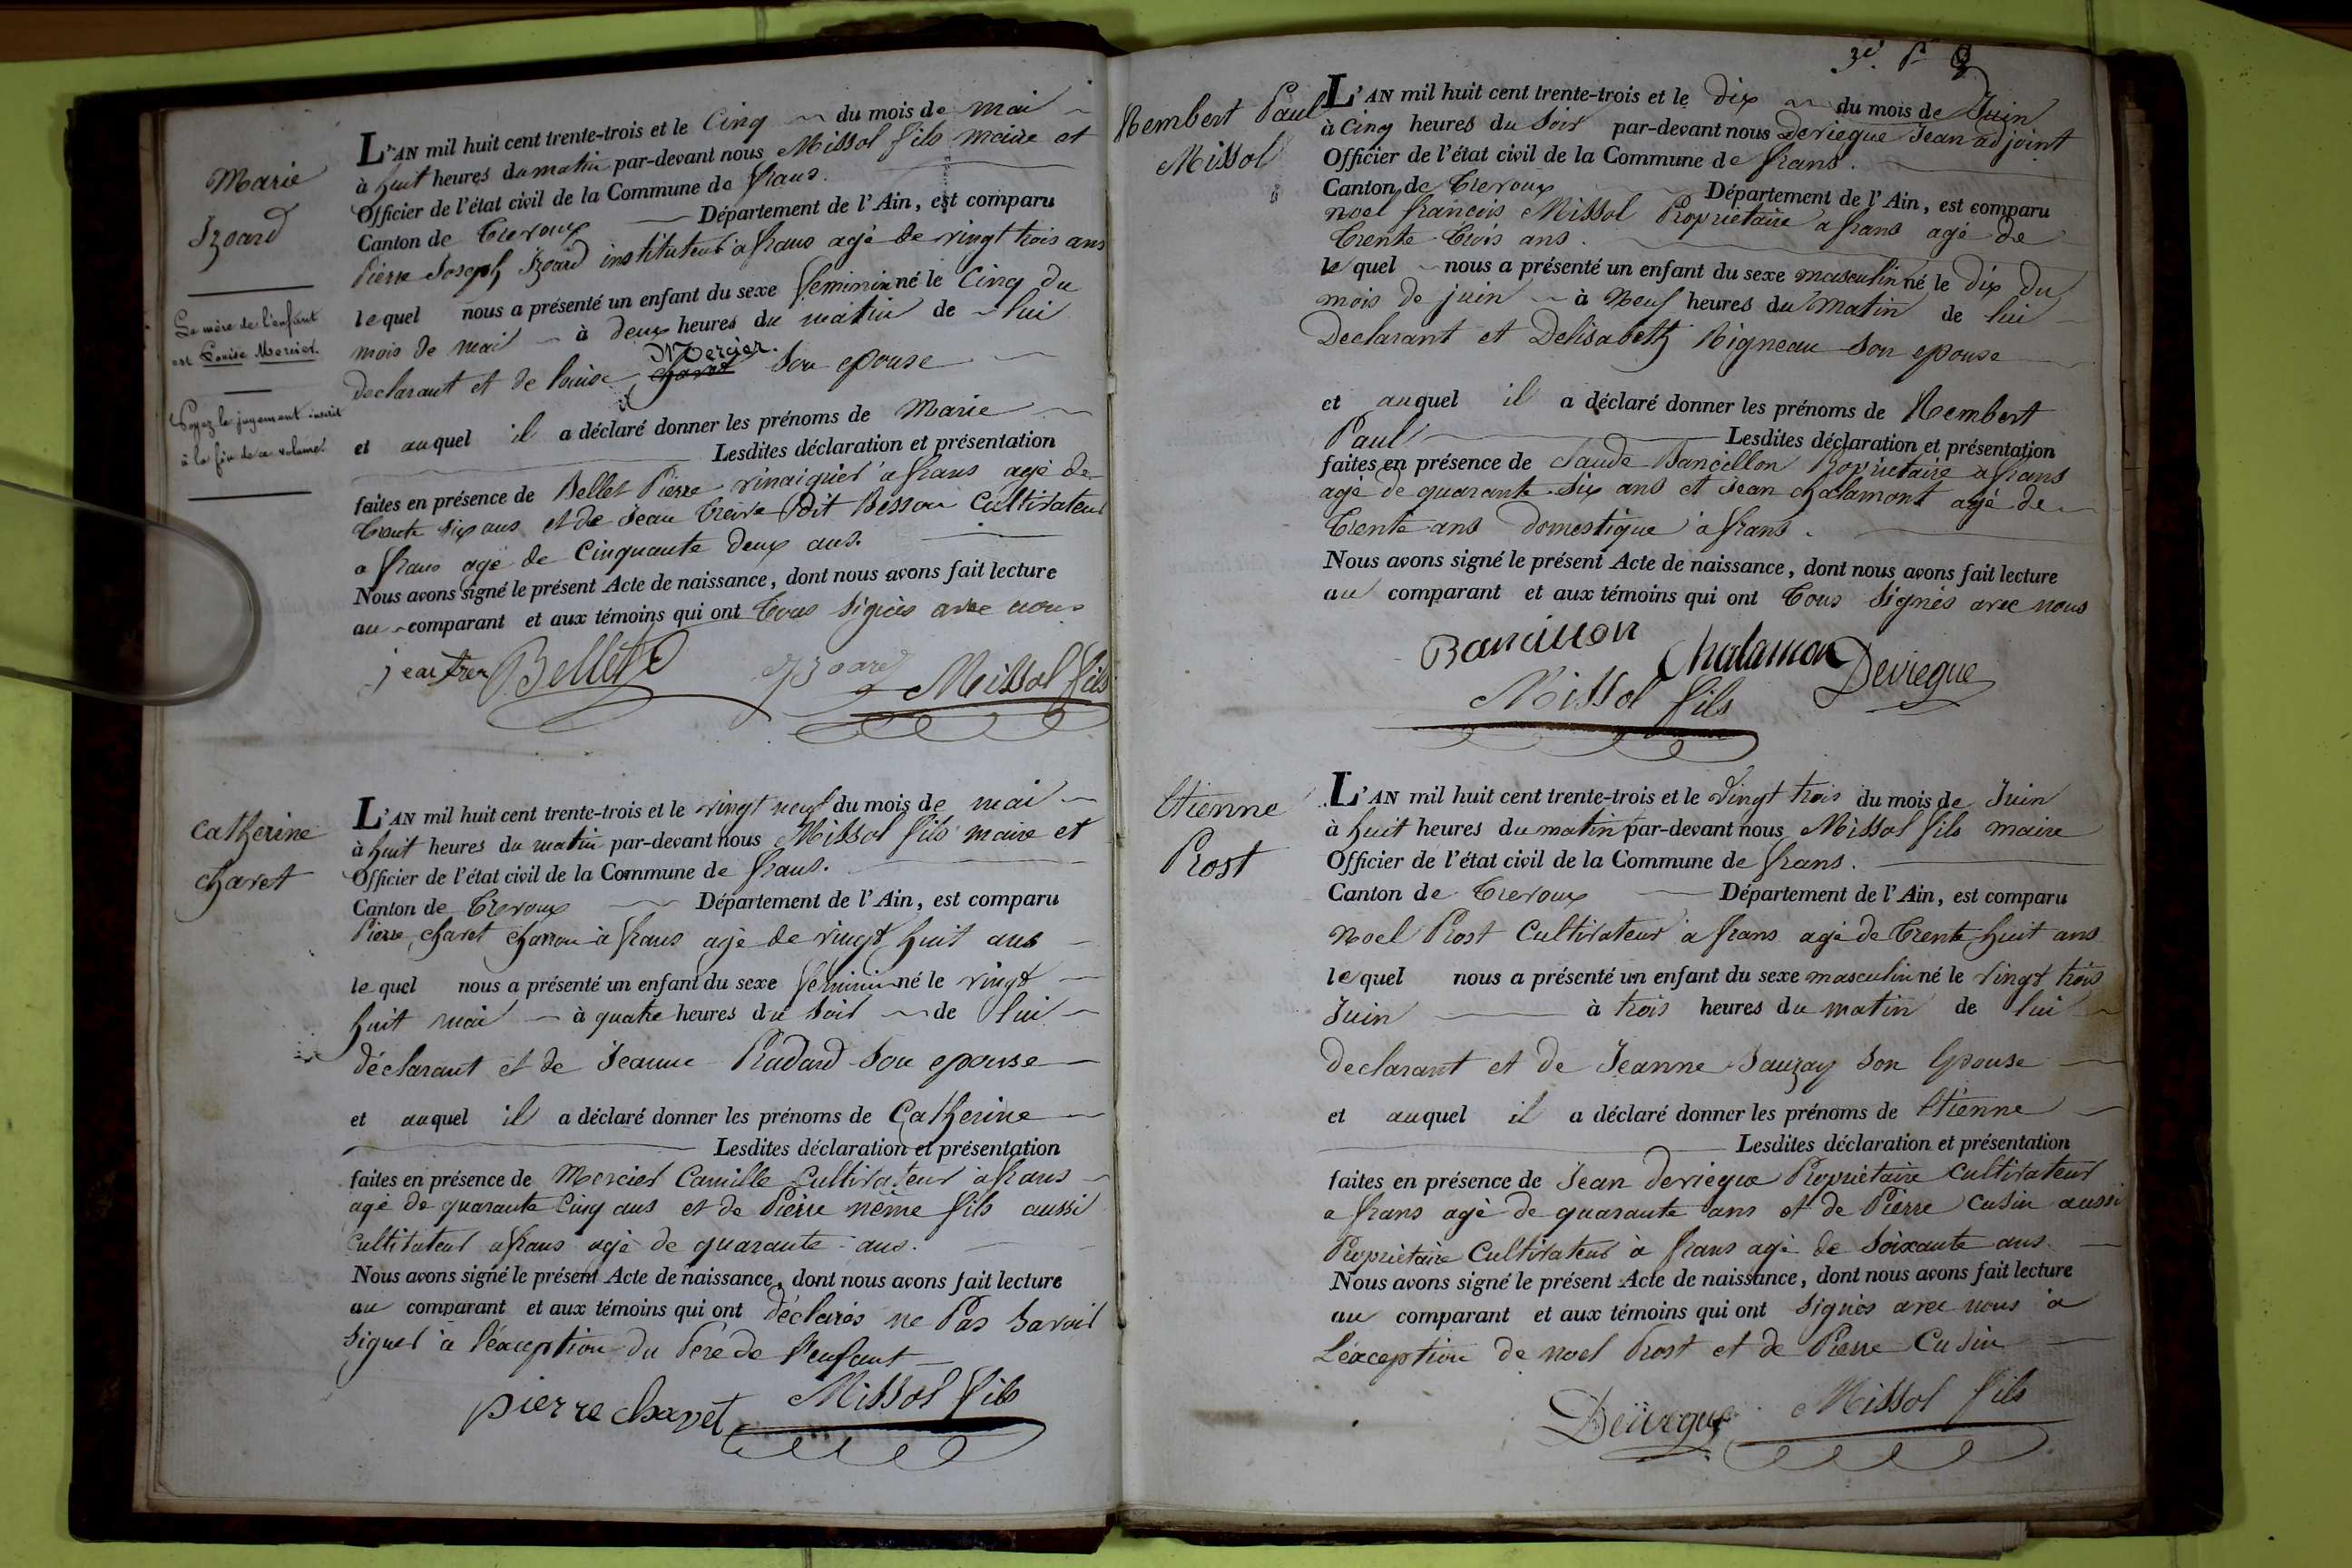 Marie
Izoard
La mère de l'enfant
est Louise Mercier.
Voyez le jugement inscrit
à la fin de ce volume.
L'AN mil huit cent trente-trois et le Cinq du mois de mai
à huit heures du matin par-devant nous Missol fils maire et
Officier de l'état civil de la Commune de frans.
Canton de Trevoux Département de l'Ain, est comparu
Pierre Joseph Izoard instituteur a frans agé de vingt trois ans
lequel nous a présenté un enfant du sexe feminin né le Cinq du
mois de mai à deux heures du matin de lui
Mercier.
declarant et de louise charet son epouse
et auquel il a déclaré donner les prénoms de Marie
Lesdites déclaration et présentation
faites en présence de Bellet Pierre vinaigrier a frans agé de
trente six ans et de Jean Treive dit Besson Cultivateur
a frans agé de Cinquante deux ans.
Nous avons signé le présent Acte de naissance, dont nous avons fait lecture
au comparant et aux témoins qui ont tous signés avec nous
Bellet Izoard Missol fils
Catherine
charet
L'AN mil huit cent trente-trois et le vingt neuf du mois de mai
à huit heures du matin par-devant nous Missol fils maire et
Officier de l'état civil de la Commune de frans.
Canton de Trevoux Département de l'Ain, est comparu
Pierre charet charron à frans agé de vingt huit ans
lequel nous a présenté un enfant du sexe feminin né le vingt
huit mai à quatre heures du soir de lui
déclarant et de Jeanne Radard son epouse
et auquel il a déclaré donner les prénoms de Catherine
Lesdites déclaration et présentation
faites en présence de Mercier Camille Cultivateur a frans
agé de quarante Cinq ans et de Pierre nême fils aussi
Cultivateur a frans agé de quarante ans.
Nous avons signé le présent Acte de naissance, dont nous avons fait lecture
au comparant et aux témoins qui ont déclarés ne Pas Savoir
Signer à l'éxception du Père de l'enfant
pierre charet Missol fils
Rembert Paul
Missol
L'AN mil huit cent trente-trois et le dix du mois de Juin
à Cinq heures du Soir par-devant nous Deriegue Jean adjoint
Officier de l'état civil de la Commune de frans.
Canton de Trevoux Département de l'Ain, est comparu
noel francois Missol Propriétaire a frans agé de
trente trois ans.
lequel nous a présenté un enfant du sexe masculin né le dix du
mois de juin à Neuf heures du matin de lui
Declarant et Delisabeth Rigneau son epouse
et auquel il a déclaré donner les prénoms de Rembert
Paul Lesdites déclaration et présentation
faites en présence de Claude Bancillon Propriétaire a frans
agé de quarante Six ans et Jean chalamont agé de
trente ans domestique à frans.
Nous avons signé le présent Acte de naissance, dont nous avons fait lecture
au comparant et aux témoins qui ont tous Signés avec nous
Bancillon Chalamon Deviegue
Missol fils
Etienne
Prost
L'AN mil huit cent trente-trois et le Vingt trois du mois de Juin
à huit heures du matin par-devant nous Missol fils maire
Officier de l'état civil de la Commune de frans.
Canton de Trevoux Département de l'Ain, est comparu
Noel Prost Cultivateur a frans agé de trente huit ans
lequel nous a présenté un enfant du sexe masculin né le Vingt trois
Juin à trois heures du matin de lui
declarant et de Jeanne Sauzay son Epouse
et auquel il a déclaré donner les prénoms de Etienne
Lesdites déclaration et présentation
faites en présence de Jean deriegue Propriétaire Cultivateur
a frans agé de quarante ans et de Pierre Cusin aussi
Propriétaire Cultivateur à frans agé de Soixante ans.
Nous avons signé le présent Acte de naissance, dont nous avons fait lecture
au comparant et aux témoins qui ont Signés avec nous a
L'éxception de noel Prost et de Pierre Cusin
Deviegue Missol fils